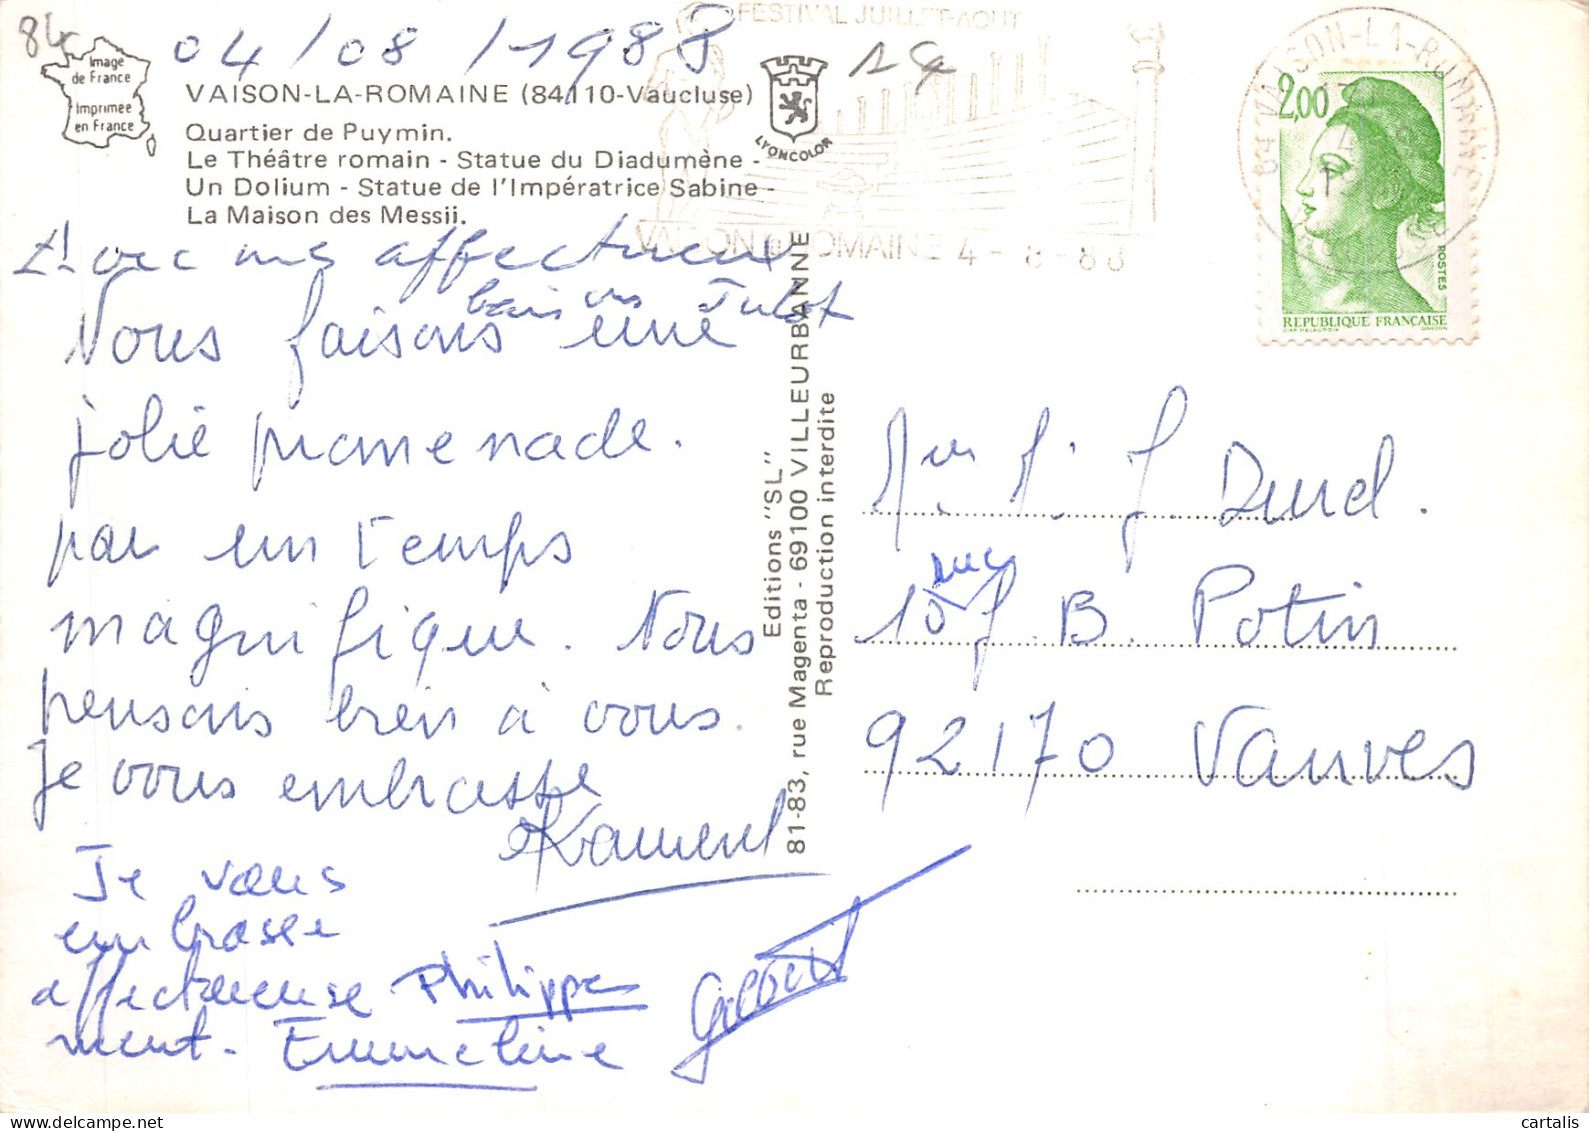 84
Image
de France
Imprimée
en France
04/08/1988
FESTIVAL JUILLET-AOUT
VAISON-LA-ROMAINE (84110-Vaucluse)
Quartier de Puymin.
Le Théâtre romain - Statue du Diadumène -
Un Dolium - Statue de l'Impératrice Sabine -
La Maison des Messii.
LYONCOLOR
VAISON la ROMAINE 4-8-88
84 VAISON-LA-ROMAINE
2,00
POSTES
REPUBLIQUE FRANÇAISE
Avec mes affectueux
baisers Julot
Nous faisons une
jolie promenade.
par un temps
magnifique. Nous
pensons bien à vous.
Je vous embrasse
Je vous
embrasse
affectueuse
ment. Emmeline
Philippe
Gilbert
Editions "SL"
81-83, rue Magenta - 69100 VILLEURBANNE
Reproduction interdite
J. Durel.
10 rue J. B. Potin
92170 Vanves
cartalis